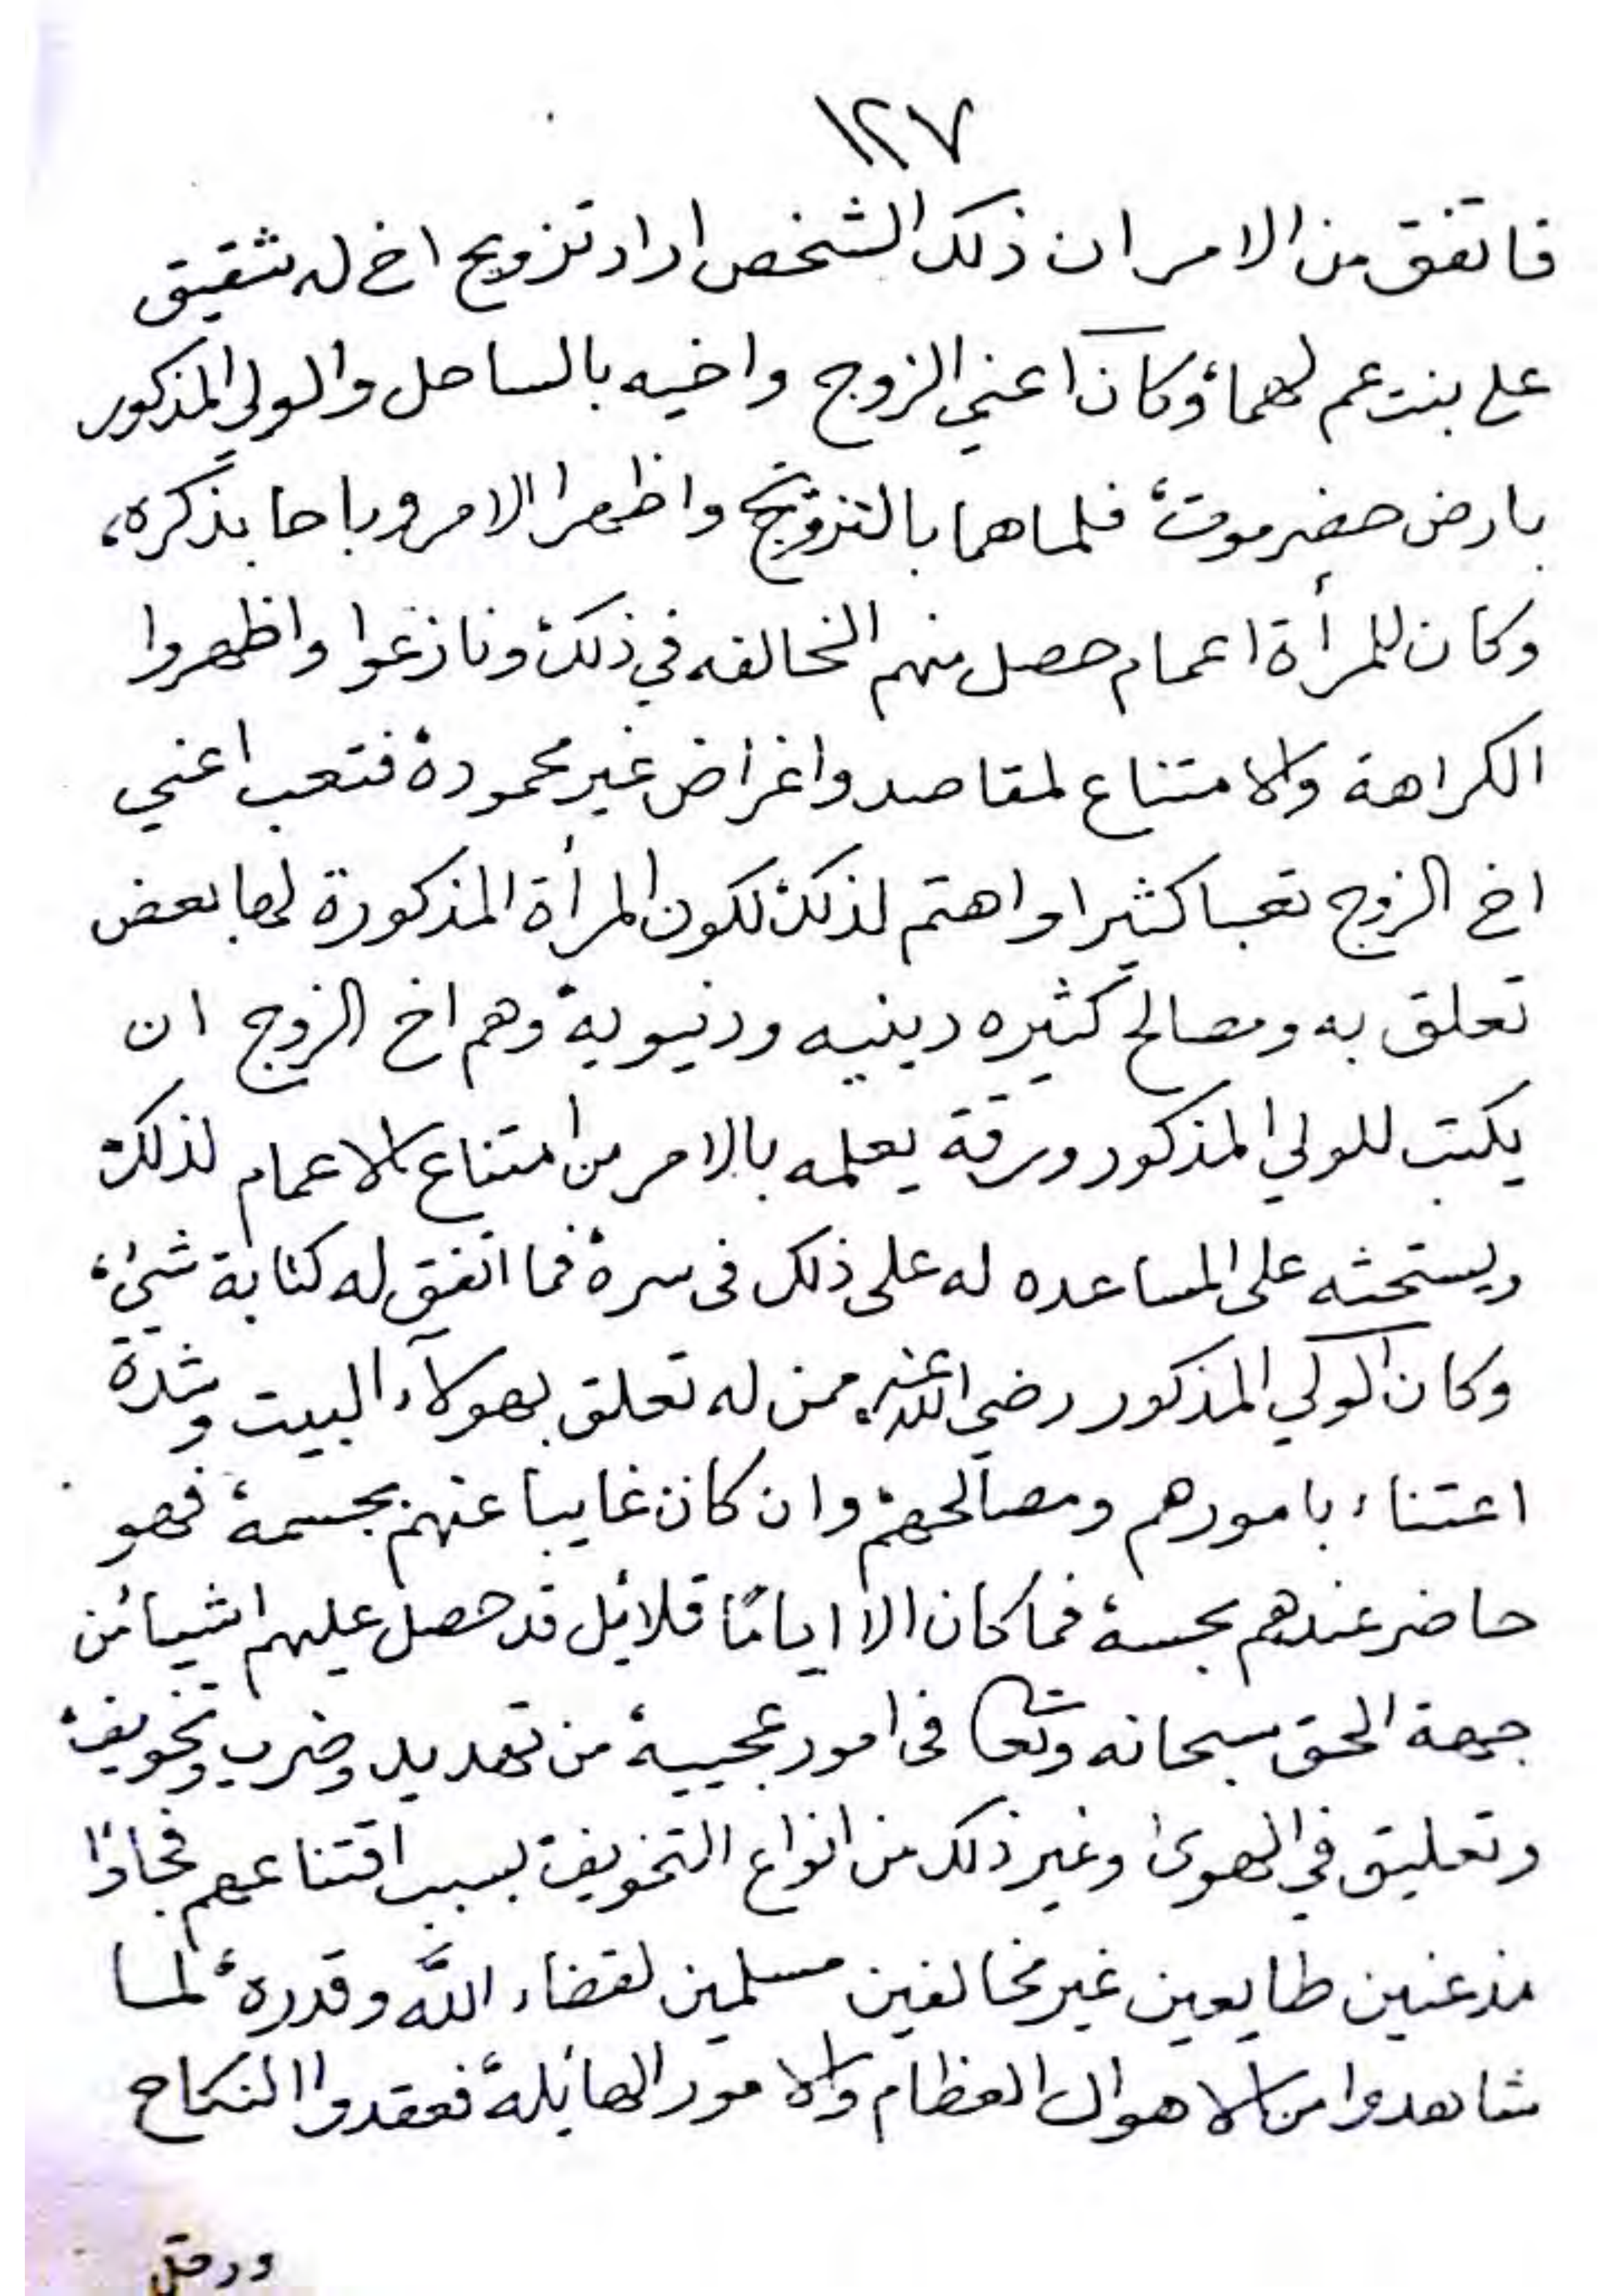 ١٢٧
فاتفق من الامر ان ذلك الشخص اراد تزويج اخ له شقيق
على بنت عم لهما، وكان اعني الزوج واخيه بالساحل والولي المذكور
بارض حضرموت، فلما هما بالتزويج واظهرا الامر وباحا بذكره،
وكان للمرأة اعمام حصل منهم المخالفه في ذلك، ونازعوا واظهروا
الكراهة والامتناع لمقاصد واغراض غير محمودة، فتعب اعني
اخ الزوج تعبا كثيرا واهتم لذلك، لكون المرأة المذكورة لها بعض
تعلق به ومصالح كثيره دينيه ودنيوية، وهم اخ الزوج ان
يكتب للولي المذكور ورقة يعلمه بالامر من امتناع الاعمام لذلك،
ويستحثه على المساعده له على ذلك فى سره، فما اتفق له كتابة شئ،
وكان الولي المذكور رضي الله عنه ممن له تعلق بهولآء البيت وشدة
اعتناء بامورهم ومصالحهم، وان كان غايبا عنهم بجسمه، فهو
حاضر عندهم بحسه، فما كان الا اياما قلائل قد حصل عليهم اشياء من
جهة الحق سبحانه وتعا فى امور عجيبة، من تهديد وضرب وتخويف،
وتعليق في الهوى وغير ذلك من انواع التخويف بسبب امتناعهم فجاؤا
مذعنين طايعين غير مخالفين مسلمين لقضاء الله وقدره، لما
شاهدوا من الاهوال العظام والامور الهائلة، فعقدوا النكاح